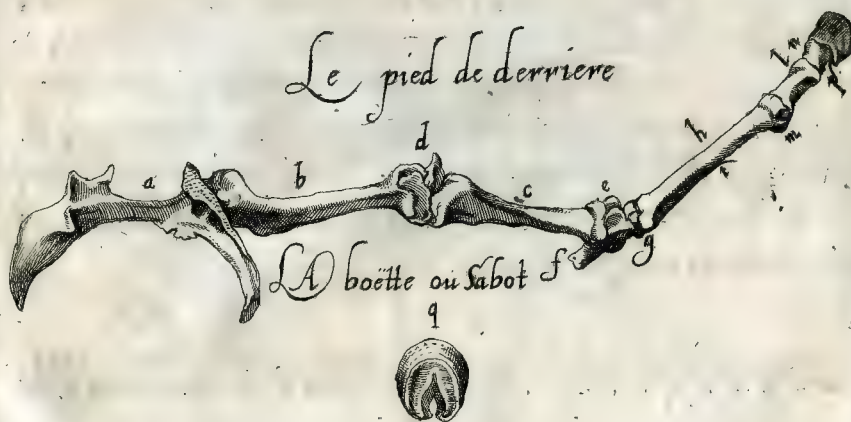 Le pied de derriere
d
a
b
c
e
f
g
h
m
LA boëtte ou Sabot
q